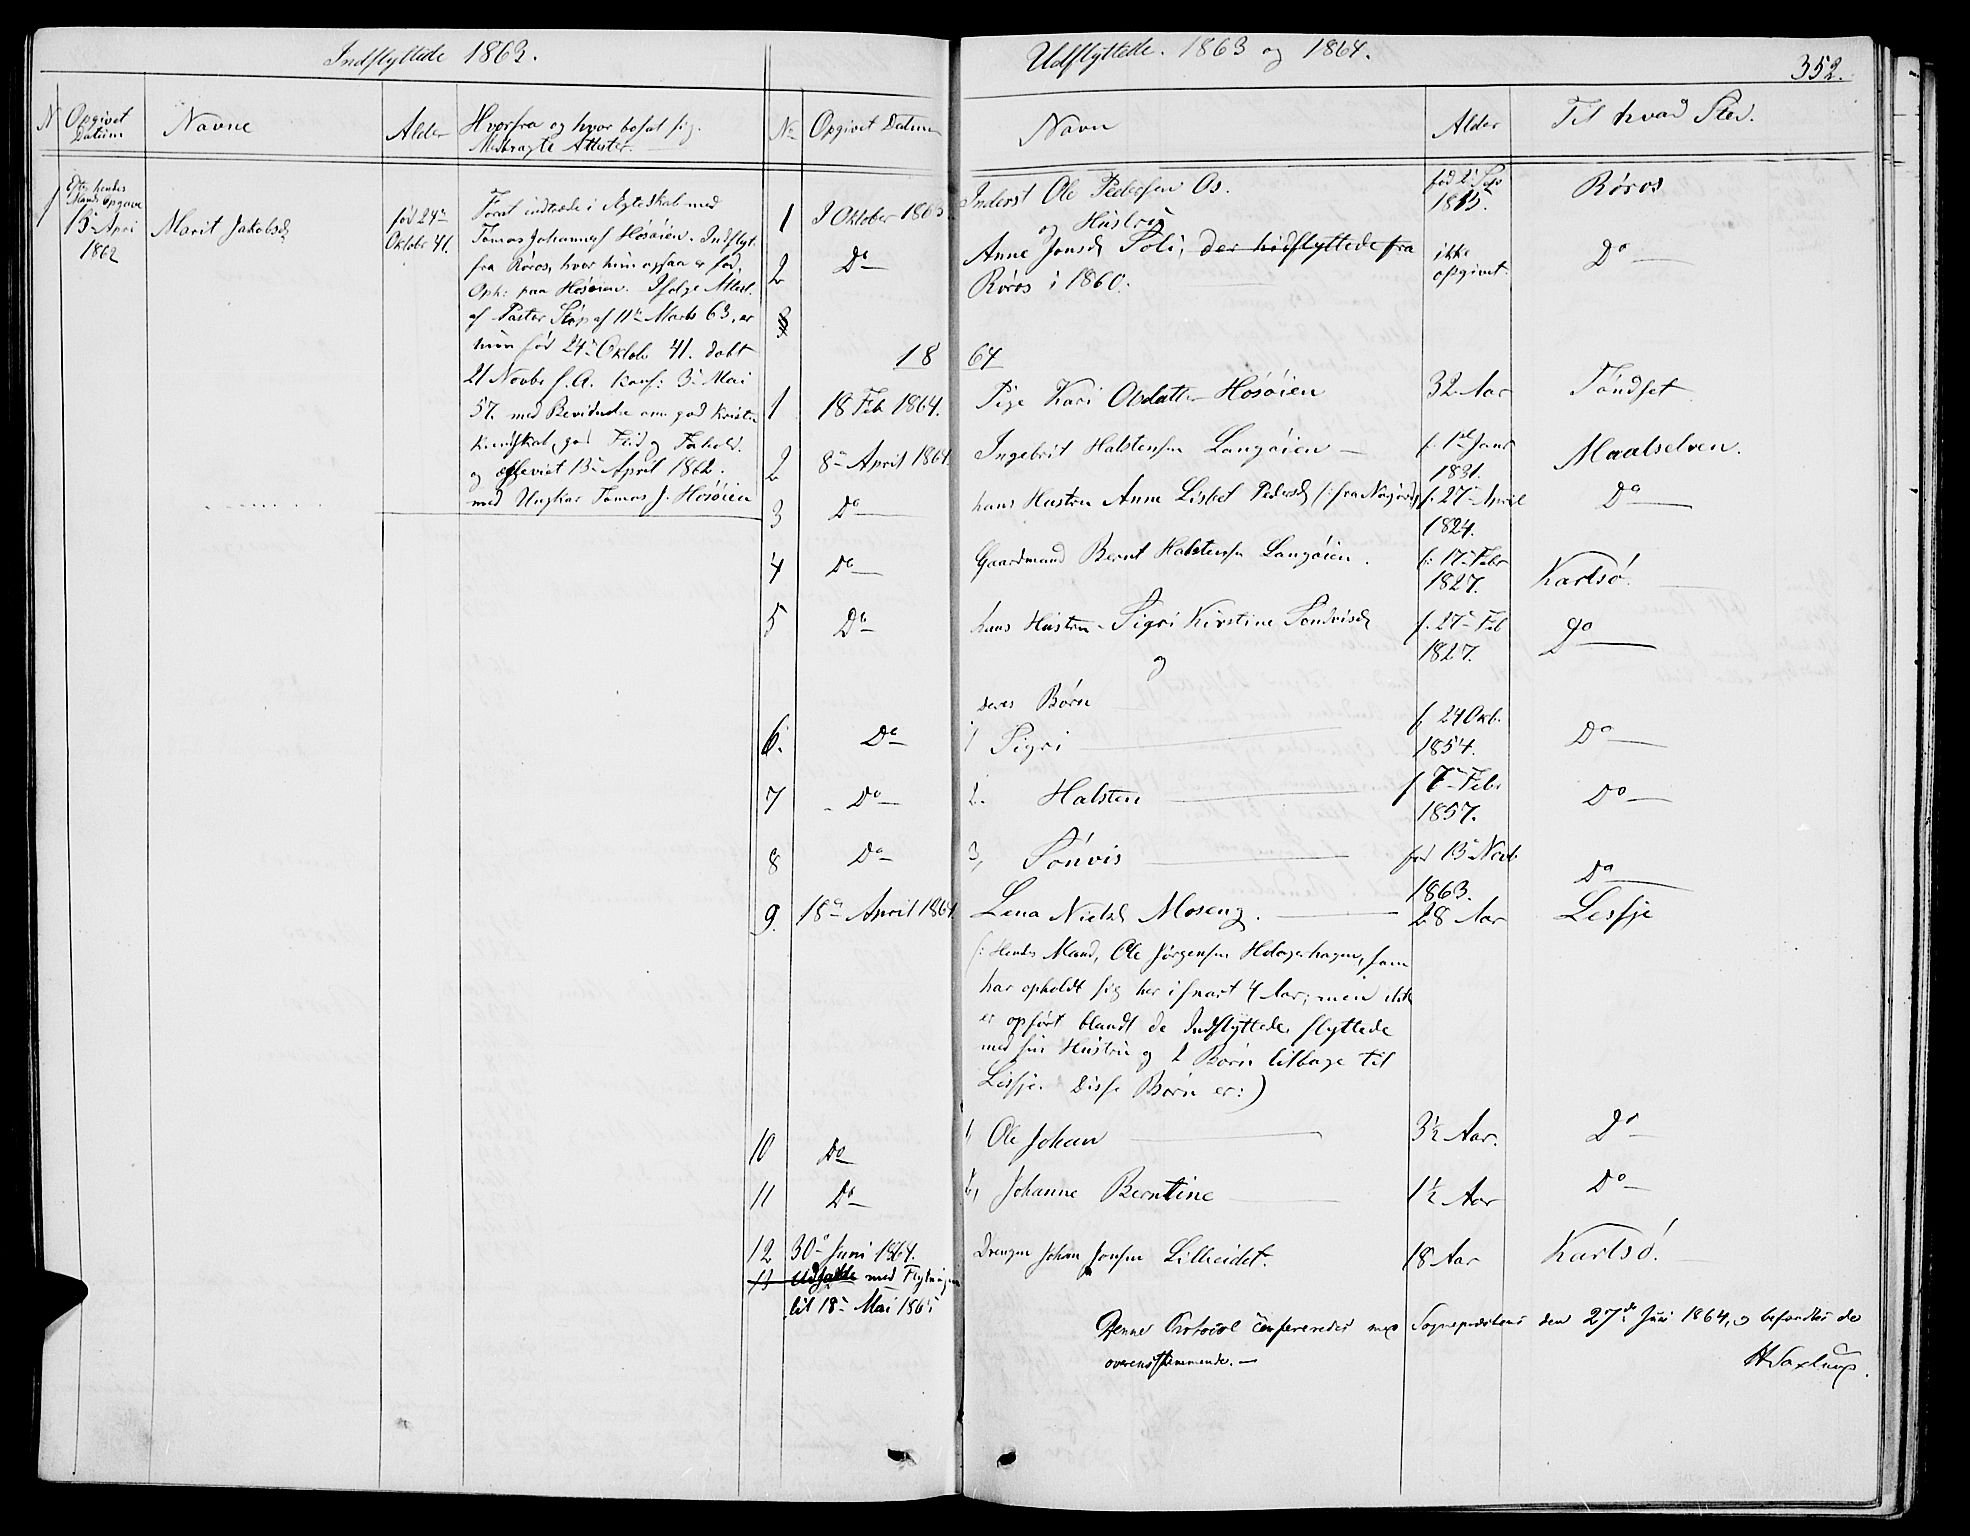 Indflyttede 1863.
N
Opgivet
Datum
Navne
Alder
Hvorfra og hvor bosat sig.
Medbragte Attester.
1
Efter hendes
Mands Opgave
13de April
1862
Marit Jakobsd
fød 24de
Oktobr 41.
Forat indtræde i Ægteskab med
Tomas Johannes Hosøien. Indflyt.
fra Røros, hvor hun ogsaa er fød,
Oph: paa Hosøien. Ifølge Attest
af Pastor Stop af 11te Marts 63, er
hun fød 24de Oktob 41. døbt
21 Novbr s. A. Konf: 3de Mai
57. med Bevidnelse om god Kristen
Kundskab, god Flid og Forhold.
og ægteviet 13de April 1862.
med Ungkar Tomas J. Hosøien
Udflyttede. 1863 og 1864.
352.
No
Opgivet Datum
Navn
Alder
Til hvad Sted.
1
Oktober 1863
Inderst Ole Pedersen Os.
fød
1815.
Røros
og Hustru
2
Do
Anne Jonsd Soli, der hidflyttede fra
Røros i 1860.
ikke
opgivet.
Do
3
1864
1
18 Feb 1864.
Pige Kari Olsdatter Hosøien
32 Aar
Tøndset
2
8de April 1864.
Ingebrit Halstensen Langøien
f. 1ste Janr
1831.
Maalselven.
3
Do
hans Hustru Anne Lisbet Pedersd
f. 27de April
1824.
Do
4
Do
Gaardmand Bernt Halstensen Langøien.
f. 17de Febr
1827.
Karlsø.
5
Do
hans Hustru Sigri Kirstine Søndvisd
f. 27de Feb
1827.
Do
og
deres Børn
6.
Do
1 Sigri
f. 24 Okb.
1854.
Do
7
Do
2. Halsten
f 7de Febr
1857.
Do
8
Do
3, Sønvis
fød 13de Novb.
1863.
Do
9.
18de April 1864.
Lena Nielsd Moseng.
28 Aar
Lessje
(: Hendes Mand, Ole Jørgensen Holagerhagen, som
har opholdt sig her i snart 4 Aar, men ikke
er opført blandt de Indflyttede, flyttede
med sin Hustru og 2 Børn tilbage til
Lessje. Disse Børn er:)
10
Do
1 Ole Johan
3½ Aar.
Do
11
Do
2, Johanne Berntine
1½ Aar
Do
12
30te Juni 1864.
Drengen Johan Jonsen Lilleeidet.
18 Aar
Karlsø.
13 Udsatte med Flytningen
til 18de Mai 1865
Denne Protocol confereredes med Sognepræstens den 27de Juni 1864, og befandtes de
overensstemmende. —
H Saxlund.